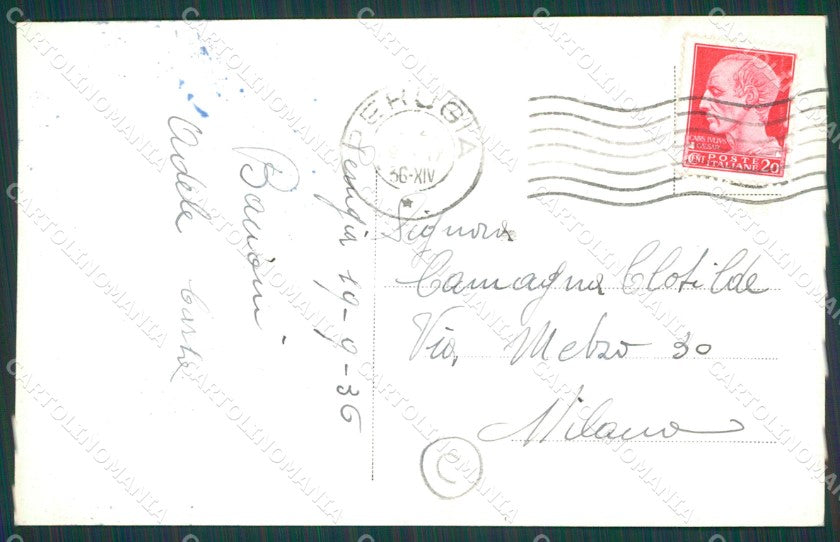 Perugia 19-9-36
Bacioni
Adele
PERUGIA
36-XIV
CAIVS IVLIVS
CAESAR
CENT POSTE 20
ITALIANE
Signora
Camagna Clotilde
Via, Melzo 30
Milano
C
CARTOLINOMANIA